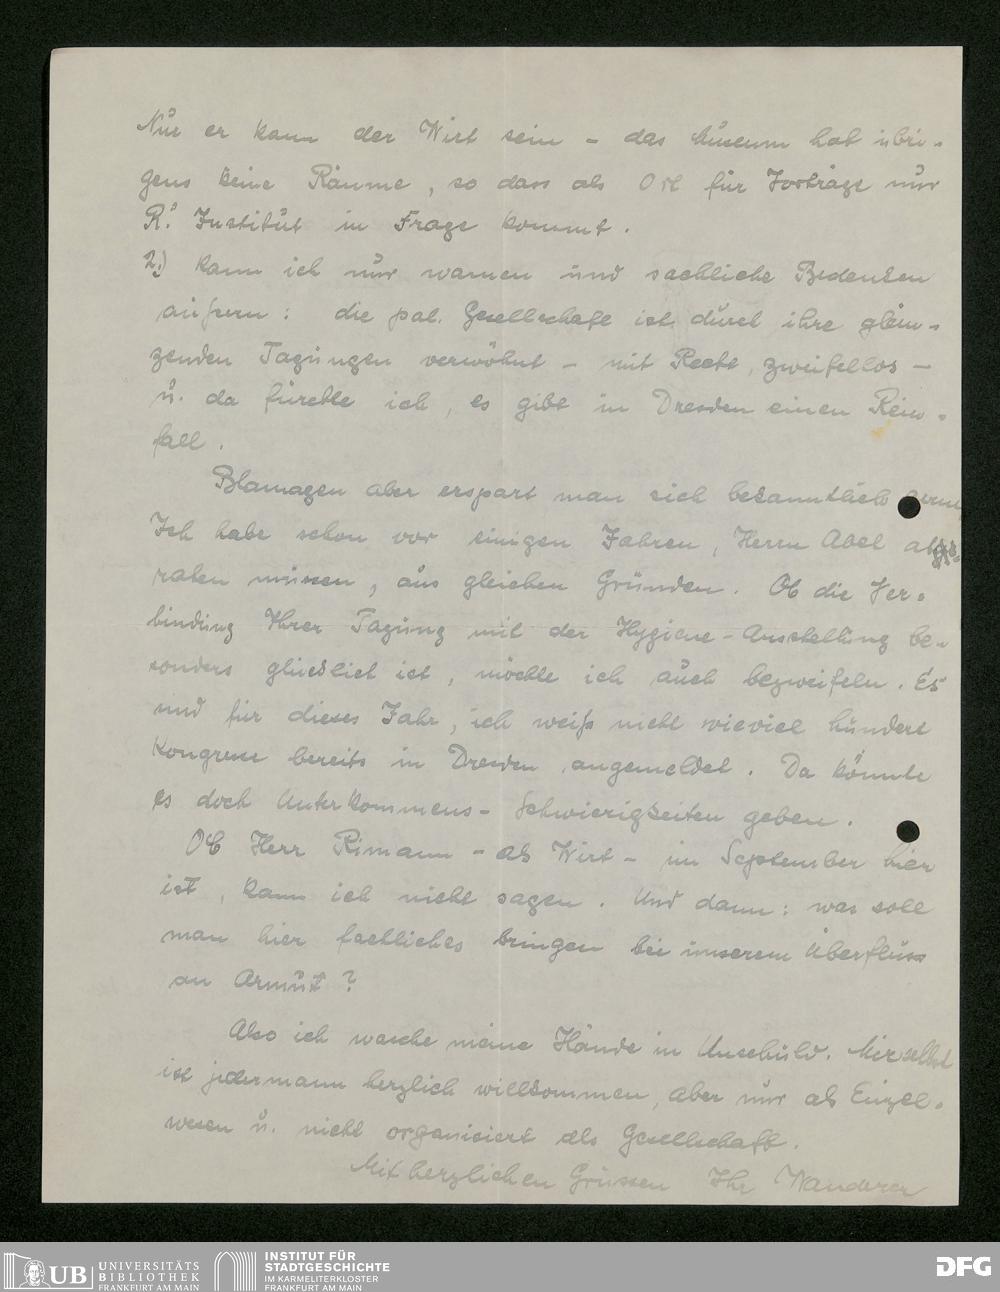 Nur er kann der Wirt sein – das Museum hat übri-
gens keine Räume, so dass als Ort für Vorträge nur
R.'s Institut in Frage kommt.
2.) kann ich nur warnen und sachliche Bedenken
äußern: die pal. Gesellschaft ist durch ihre glän-
zenden Tagungen verwöhnt – mit Recht, zweifellos –
u. da fürchte ich, es gibt in Dresden einen Rein-
fall.
Blamagen aber erspart man sich bekanntlich gern.
Ich habe schon vor einigen Jahren, Herrn Abel ab-
raten müssen, aus gleichen Gründen. Ob die Ver-
bindung Ihrer Tagung mit der Hygiene-Ausstellung be-
sonders glücklich ist, möchte ich auch bezweifeln. Es
sind für dieses Jahr, ich weiß nicht wieviel hundert
Kongresse bereits in Dresden angemeldet. Da könnte
es doch Unterkommens-Schwierigkeiten geben.
Ob Herr Rimann – als Wirt – im September hier
ist, kann ich nicht sagen. Und dann: was soll
man hier fachliches bringen bei unserem Überfluss
an Armut?
Also ich wasche meine Hände in Unschuld. Mir selbst
ist jedermann herzlich willkommen, aber nur als Einzel-
wesen u. nicht organisiert als Gesellschaft.
Mit herzlichen Grüssen Ihr Wanderer
UB UNIVERSITÄTS
BIBLIOTHEK
FRANKFURT AM MAIN
INSTITUT FÜR
STADTGESCHICHTE
IM KARMELITERKLOSTER
FRANKFURT AM MAIN
DFG